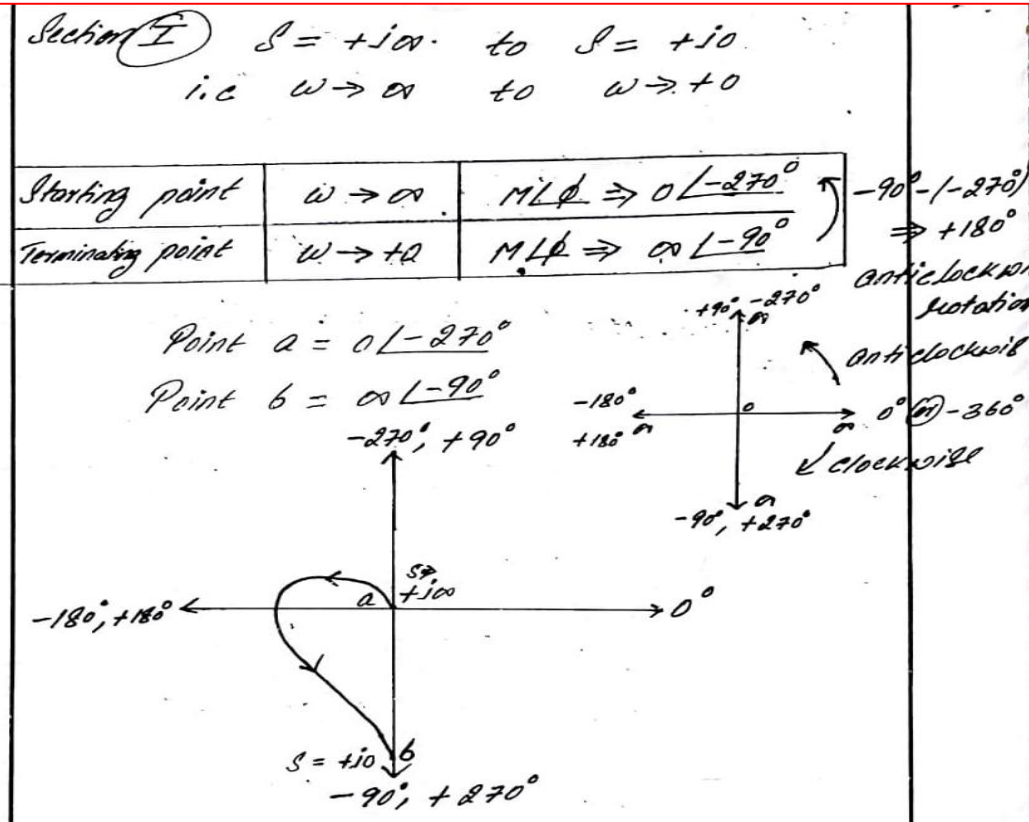 Section I S = +j∞ to S = +j0
i.e ω → ∞ to ω → +0
Starting point ω → ∞ M∠φ ⇒ 0∠-270°
Terminating point ω → +0 M∠φ ⇒ ∞∠-90°
-90° - (-270°)
⇒ +180°
anticlockwi
rotation
Point a = 0∠-270°
Point b = ∞∠-90°
+90° -270°
∞
anticlockwise
-180°
+180° ∞
0
∞ 0° or -360°
clockwise
∞
-90°, +270°
-270°, +90°
S=
+j∞
a
-180°, +180°
0°
S = +j0 b
-90°, +270°